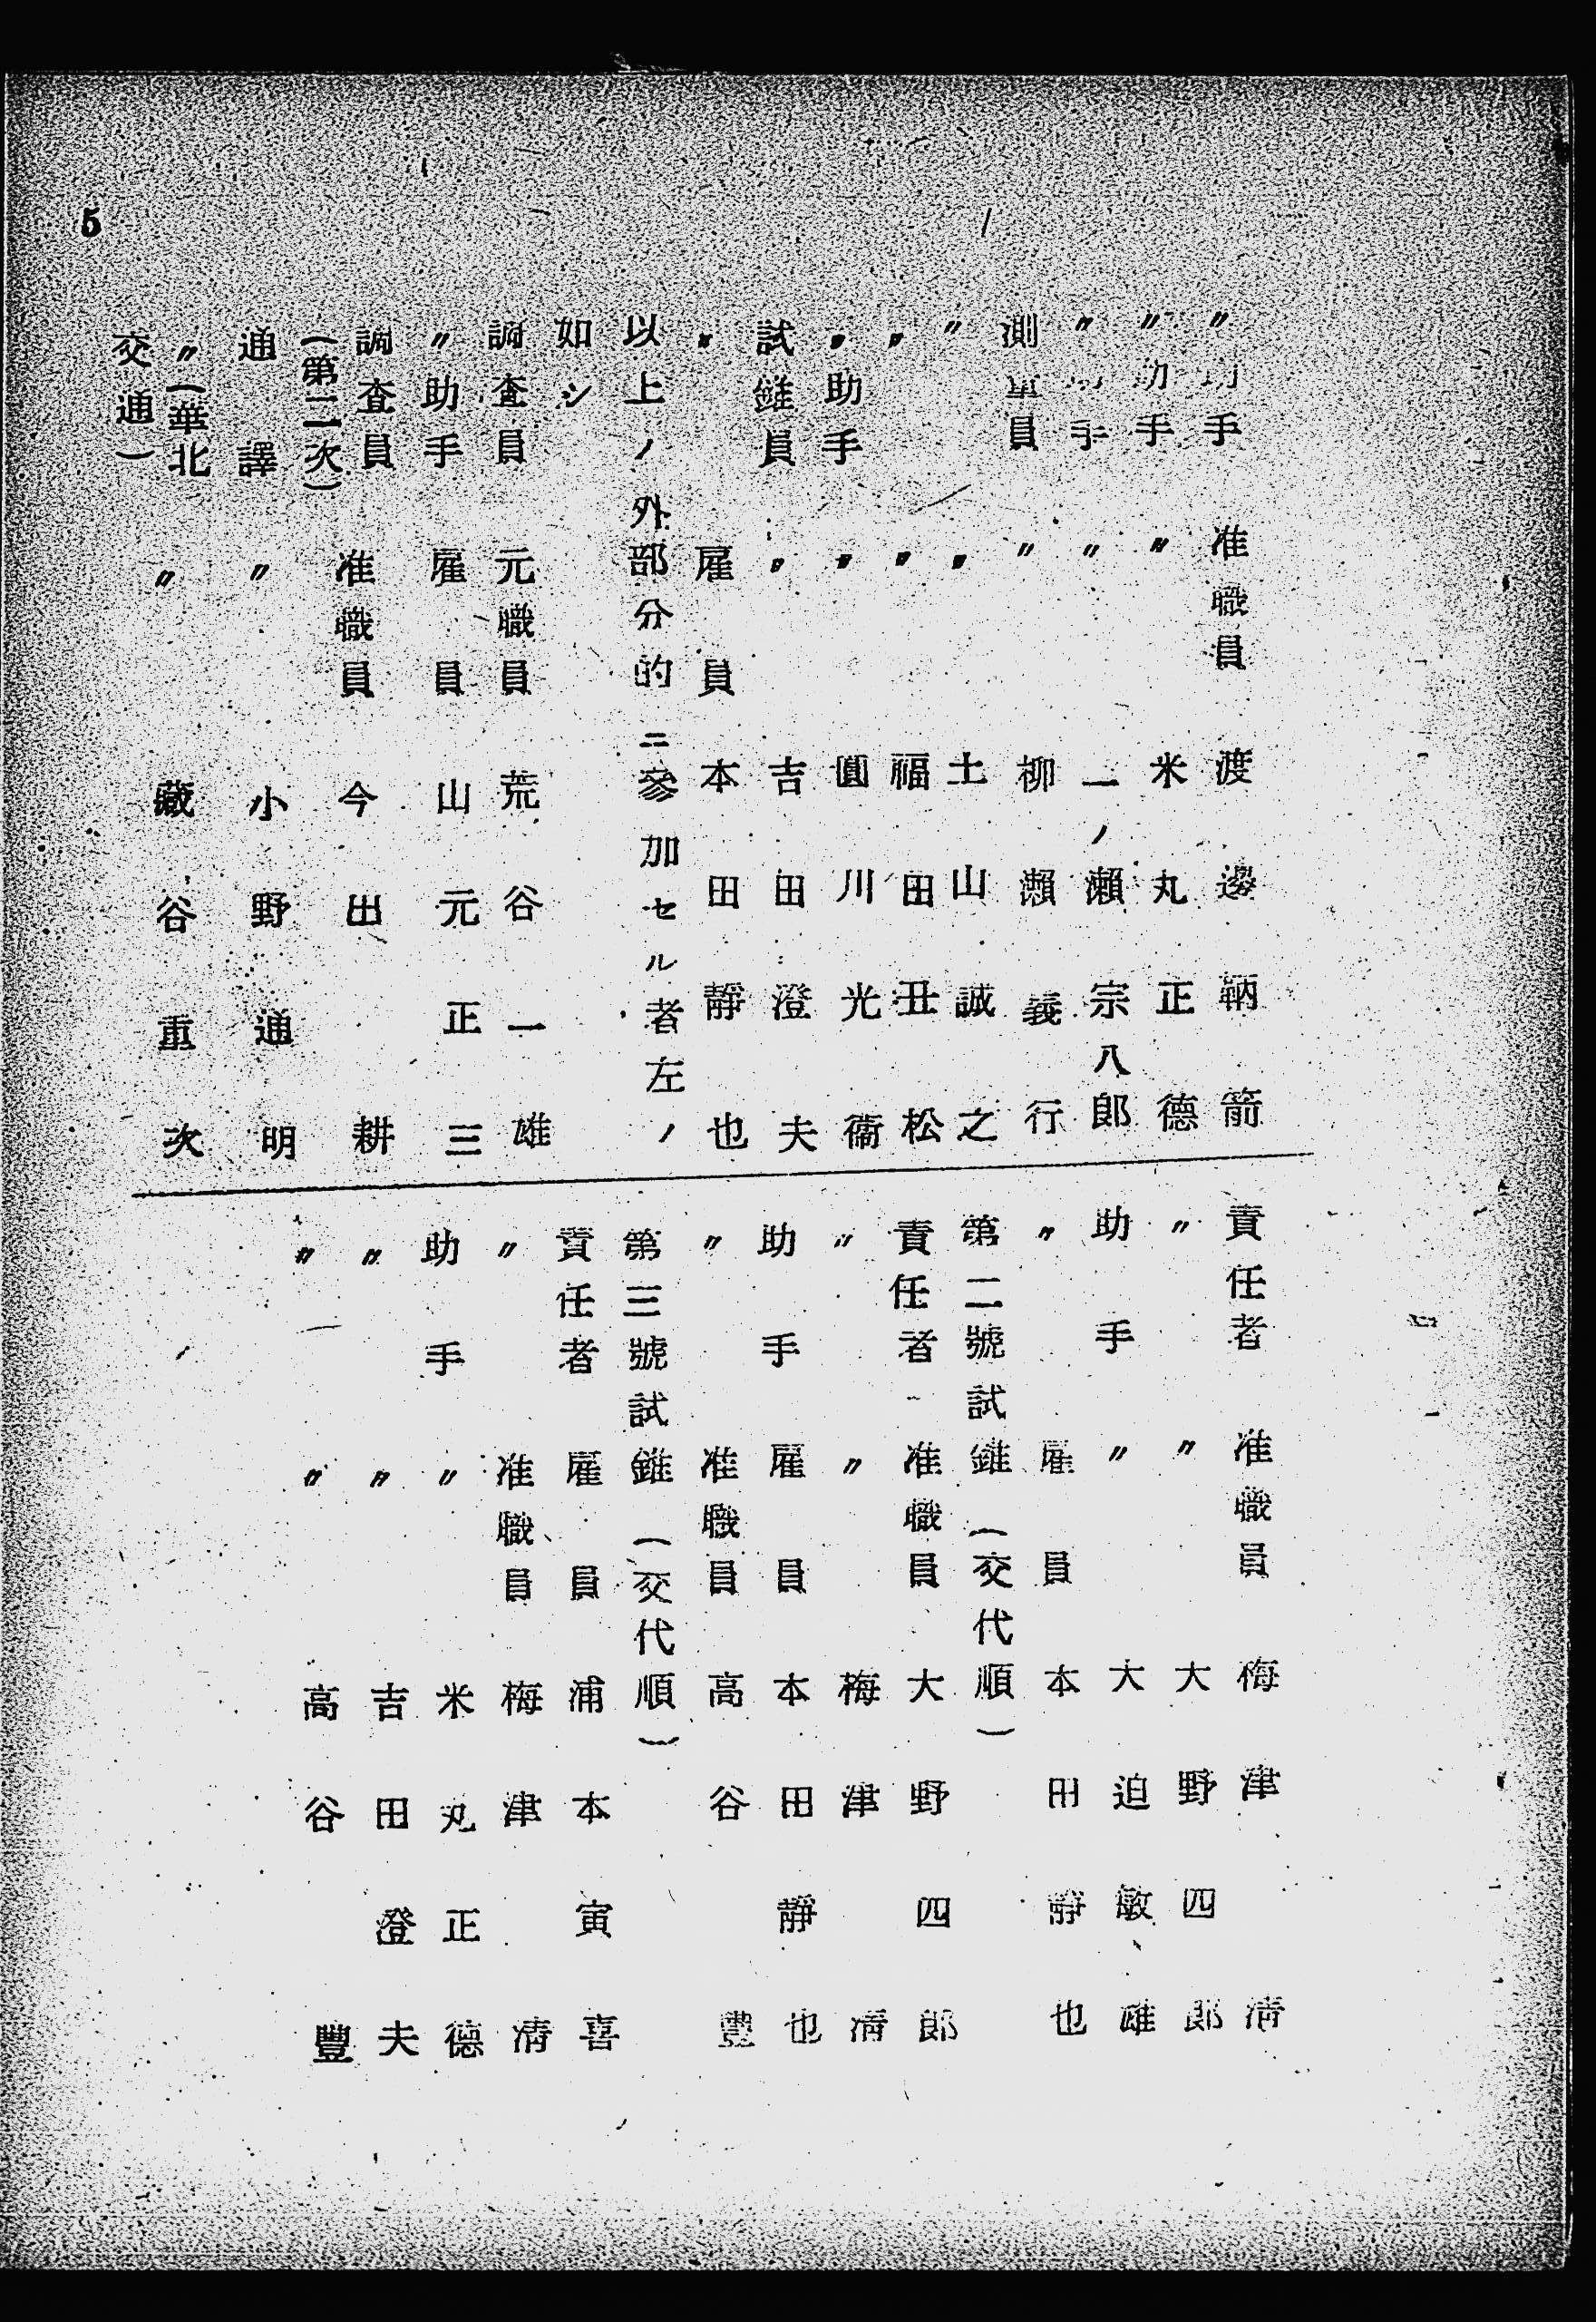 〃助手 准職員 渡邊鞆箭
〃助手 〃 米丸正德
〃助手 〃 一ノ瀬宗八郎
測量員 〃 柳瀬義行
〃 〃 土山誠之
〃 〃 福田丑松
〃助手 〃 圓川光衞
試錐員 〃 吉田澄夫
〃 雇員 本田靜也
以上ノ外部分的ニ參加セル者左ノ
如シ
調査員 元職員 荒谷一雄
〃助手 雇員 山元正三
調査員 准職員 今出耕
(第二次)
通譯 〃 小野通明
〃(華北 〃 藏谷重次
交通)
責任者 准職員 梅津淸
〃 〃 大野四郎
助手 〃 大迫敏雄
〃 雇員 本田靜也
第二號試錐(交代順)
責任者 准職員 大野四郎
〃 〃 梅津淸
助手 雇員 本田靜也
〃 准職員 高谷豐
第三號試錐(交代順)
責任者 雇員 浦本寅喜
〃 准職員 梅津淸
助手 〃 米丸正德
〃 〃 吉田澄夫
〃 〃 高谷豐
5